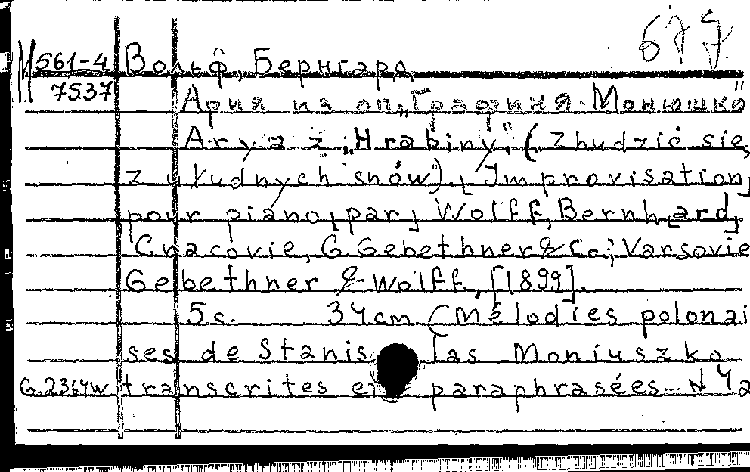 677
М 561-4 Вольф, Бернгард
7537 Ария из оп. „Графиня" Монюшко
Arya z „Hrabiny" ( Zbudzić się,
z ułudnych snów). [Improvisation]
pour piano, par] Wolff, Bernh[ard]
Cracovie, G. Gebethner & Co.; Varsovie
Gebethner & Wolff, [1899].
5 с. 34 cm (Mélodies polonai
ses de Stanis las Moniuszko
G. 2364 W transcrites e paraphrasées. N 4a